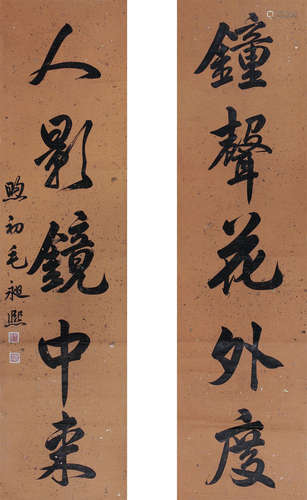 鐘聲花外度
人影鏡中来
煦初毛昶熙